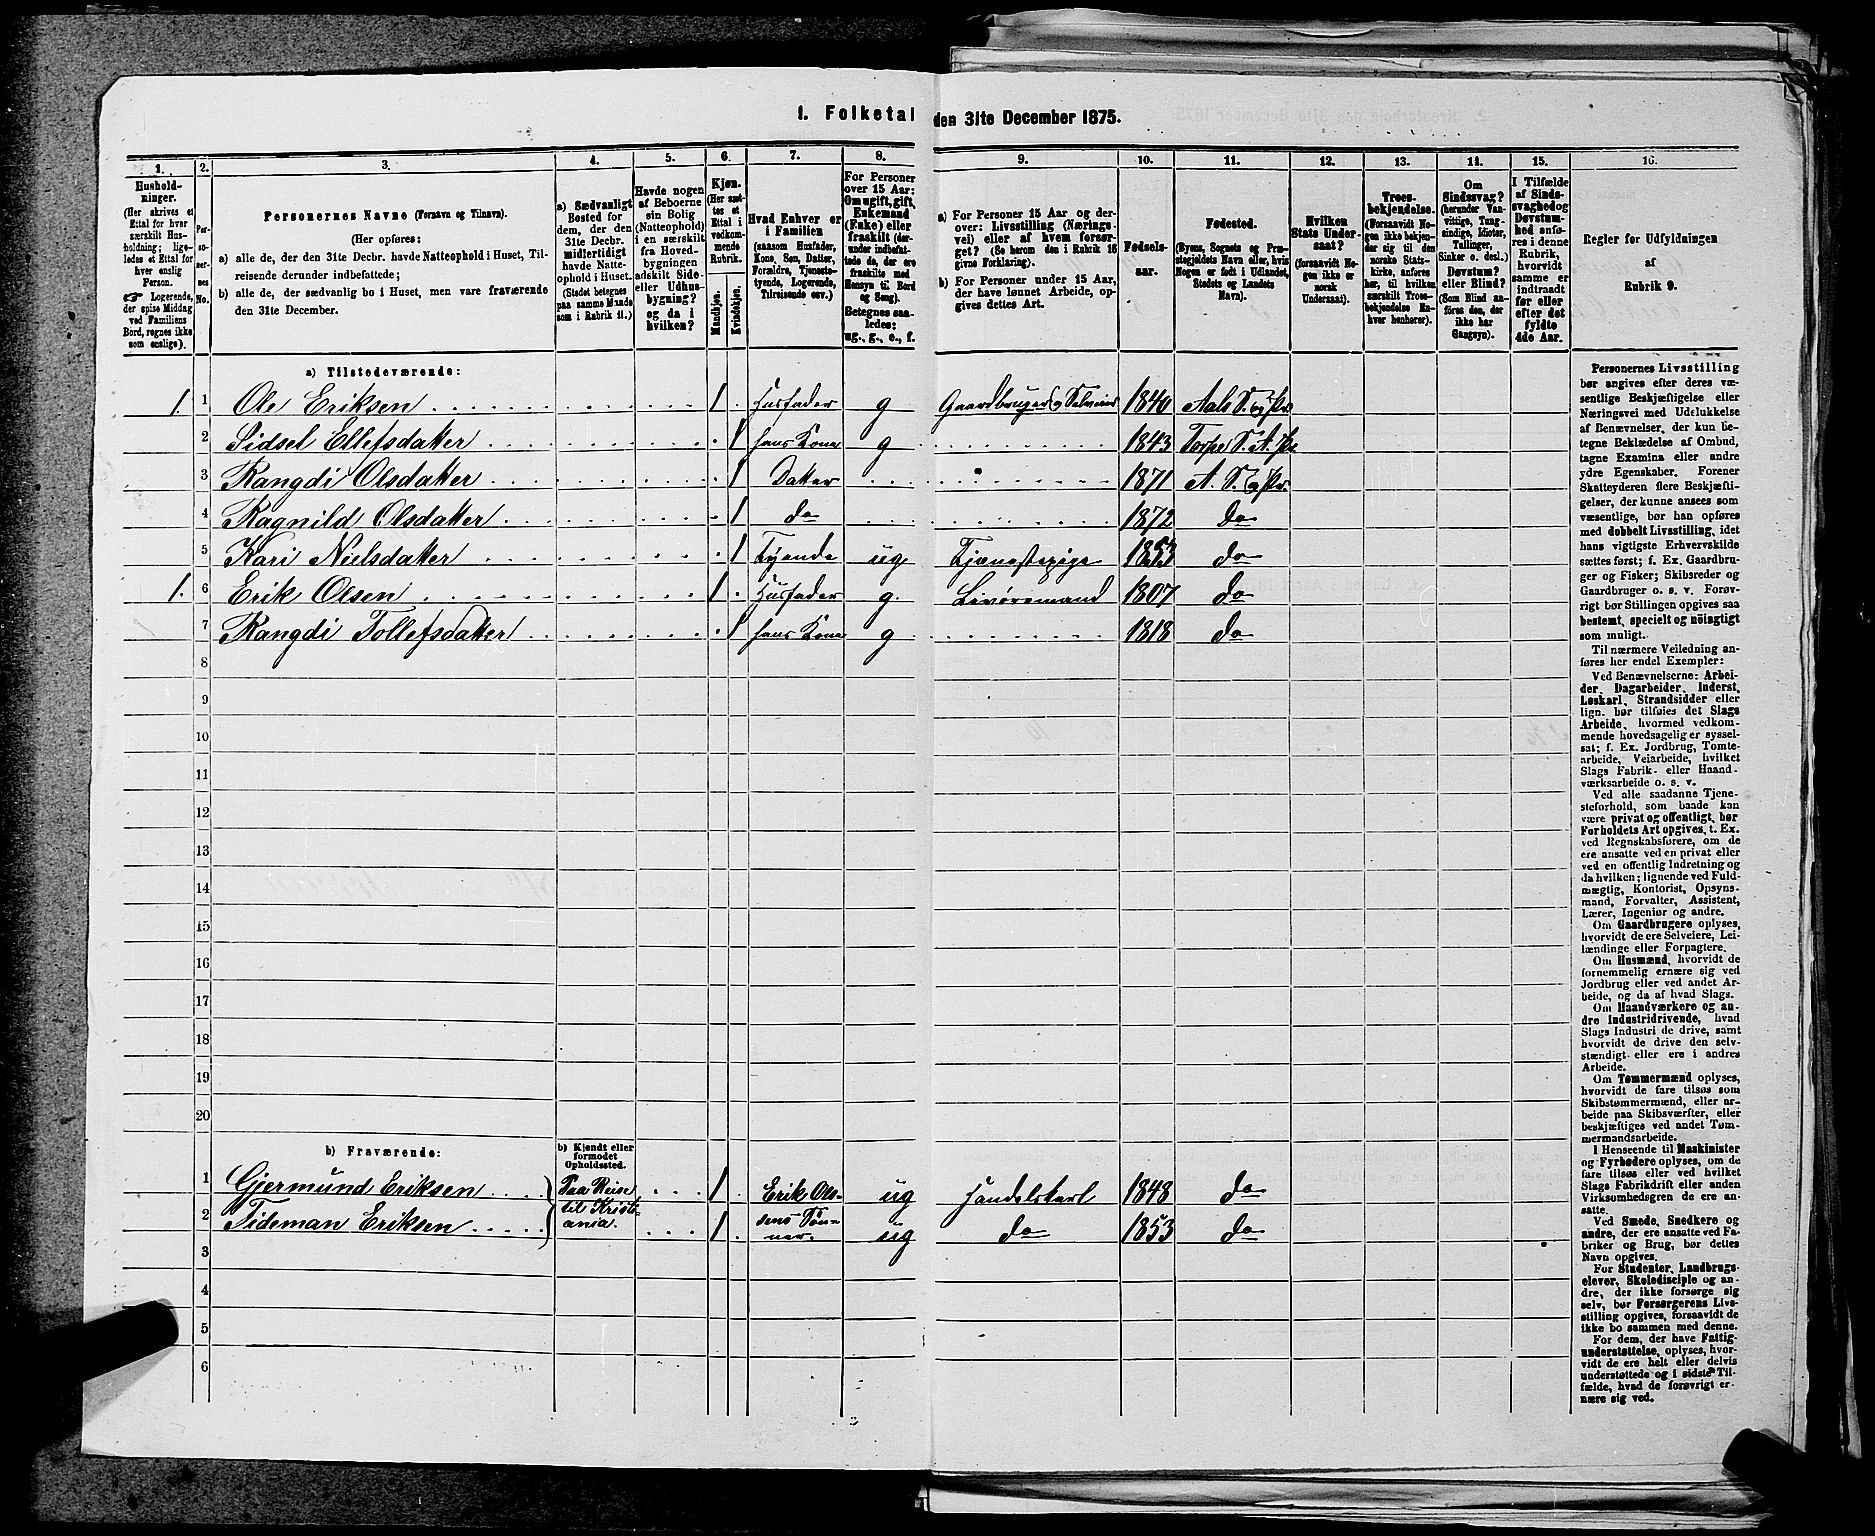 1. Folketal den 31te December 1875.
1. 2. 3. 4. 5. 6. 7. 8. 9. 10. 11. 12. 13. 14. 15. 16.
Hushold-
ninger.
(Her skrives et
Ettal for hver
særskilt Hus-
holdning; lige-
ledes et Ettal for
hver enslig
Person.
☞ Logerende,
der spise Middag
ved Familiens
Bord, regnes ikke
som enslige).
Per-
so-
ner-
nes
No.
Personernes Navne (Fornavn og Tilnavn).
(Her opføres:
a) alle de, der den 31te Decbr. havde Natteophold i Huset, Til-
reisende derunder indbefattede;
b) alle de, der sædvanlig bo i Huset, men vare fraværende
den 31te December.
a) Sædvanligt
Bosted for
dem, der den
31te Decbr.
midlertidigt
havde Natte-
ophold i Huset.
(Stedet betegnes
paa samme Maade
som i Rubrik 11.)
Havde nogen
af Beboerne
sin Bolig
(Natteophold)
i en særskilt
fra Hoved-
bygningen
adskilt Side-
eller Udhus-
bygning?
og da i
hvilken?
Kjøn.
(Her sæt-
tes et
Ettal i
vedkom-
mende
Rubrik.
Mandkjøn.
Kvindekjøn.
Hvad Enhver er
i Familien
(saasom Husfader,
Kone, Søn, Datter,
Forældre, Tjeneste-
tyende, Logerende,
Tilreisende osv.)
For Personer
over 15 Aar:
Om ugift, gift,
Enkemand
(Enke) eller
fraskilt (der-
under indbefat-
tede de, der ere
fraskilte med
Hensyn til Bord
og Seng).
Betegnes saa-
ledes:
ug., g., e., f.
a) For Personer 15 Aar og der-
over: Livsstilling (Nærings-
vei) eller af hvem forsør-
get? (Se herom den i Rubrik 16
givne Forklaring).
b) For Personer under 15 Aar,
der have lønnet Arbeide, op-
gives dettes Art.
Fødsels-
aar.
Fødested.
(Byens, Sognets og Præ-
stegjeldets Navn eller, hvis
Nogen er født i Udlandet,
Stedets og Landets
Navn).
Hvilken
Stats Under-
saat?
(forsaavidt No-
gen ikke er
norsk
Undersaat).
Troes-
bekjendelse.
(Forsaavidt No-
gen ikke bekjen-
der sig til den
norske Stats-
kirke, anføres
her, til hvilken
særskilt Troes-
bekjendelse En-
hver henhører).
Om
Sindssvag?
(herunder Van-
vittige, Tung-
sindige, Idioter,
Tullinger,
Sinker o. desl.)
Døvstum?
eller Blind?
(Som Blind an-
føres den, der
ikke har
Gangsyn).
I Tilfælde
af Sinds-
svaghed og
Døvstum-
hed anfø-
res i denne
Rubrik,
hvorvidt
samme er
indtraadt
før eller
efter det
fyldte
4de Aar.
Regler for Udfyldningen
af
Rubrik 9.
a) Tilstedeværende:
1. 1 Ole Eriksen 1 Husfader g Gaardbruger og Selveier 1840 Aals S. og Pr.
2 Sidsel Ellefsdatter 1 hans Kone g 1843 Torpe S. A. Pr.
3 Rangdi Olsdatter 1 Datter 1871 A. S. og Pr.
4 Ragnild Olsdatter 1 do 1872 do
5 Kari Nielsdatter 1 Tyende ug Tjenestepige 1853 do
1. 6 Erik Olsen 1 Husfader g. Livøresmand 1807 do
7 Rangdi Tollefsdatter 1 hans Kone g 1818 do
8
9
10
11
12
13
14
15
16
17
18
19
20
b) Fraværende:
b) Kjendt eller
formodet
Opholdssted.
1 Gjermund Eriksen Paa Reise til Kristi-ania. 1 Erik Ols- ug Handelskarl 1848 do
2 Tideman Eriksen 1 sens Søn-ner. ug do 1853 do
3
4
5
6
Personernes Livsstilling
bør angives efter deres væ-
sentlige Beskjæftigelse eller
Næringsvei med Udelukkelse
af Benævnelser, der kun be-
tegne Beklædelse af Ombud,
tagne Examina eller andre
ydre Egenskaber. Forener
Skatteyderen flere Beskjæfti-
gelser, der kunne ansees som
væsentlige, bør han opføres
med dobbelt Livsstilling, idet
hans vigtigste Erhvervskilde
sættes først; f. Ex. Gaardbru-
ger og Fisker; Skibsreder og
Gaardbruger o. s. v. Forøv-
rigt bør Stillingen opgives saa
bestemt, specielt og nöiagtigt
som muligt.
Til nærmere Veiledning an-
føres her endel Exempler:
Ved Benævnelserne: Arbei-
der, Dagarbeider, Inderst,
Løskarl, Strandsidder eller
lign. bør tilføies det Slags
Arbeide, hvormed vedkom-
mende hovedsagelig er syssel-
sat; f. Ex. Jordbrug, Tomte-
arbeide, Veiarbeide, hvilket
Slags Fabrik- eller Haand-
værksarbeide o. s. v.
Ved alle saadanne Tjene-
steforhold, som baade kan
være privat og offentligt, bør
Forholdets Art opgives, t. Ex.
ved Regnskabsførere, om de
ere ansatte ved en privat eller
ved en offentlig Indretning og
da hvilken; lignende ved Fuld-
mægtig, Kontorist, Opsyns-
mand, Forvalter, Assistent,
Lærer, Ingeniør og andre.
Om Gaardbrugere oplyses,
hvorvidt de ere Selveiere, Lei-
lændinge eller Forpagtere.
Om Husmænd, hvorvidt de
fornemmelig ernære sig ved
Jordbrug eller ved andet Ar-
beide, og da af hvad Slags.
Om Haandværkere og an-
dre Industridrivende, hvad
Slags Industri de drive, samt
hvorvidt de drive den selv-
stændigt eller ere i andres
Arbeide.
Om Tømmermænd oplyses,
hvorvidt de fare tilsøs som
Skibstømmermænd, eller ar-
beide paa Skibsværfter, eller
beskjæftiges ved andet Tøm-
mermandsarbeide.
I Henseende til Maskinister
og Fyrbødere oplyses, om de
fare tilsøs eller ved hvilket
Slags Fabrikdrift eller anden
Virksomhedsgren de ere an-
satte.
Ved Smede, Snedkere og
andre, der ere ansatte ved Fa-
briker og Brug, bør dettes
Navn opgives.
For Studenter, Landbrugs-
elever, Skoledisciple og an-
dre, der ikke forsørge sig
selv, bør Forsørgerens Livs-
stilling opgives, forsaavidt de
ikke bo sammen med denne.
For dem, der have Fattig-
understøttelse, oplyses, hvor-
vidt de ere helt eller delvis
understøttede og i sidste Til-
fælde, hvad de forøvrigt er-
nære sig ved.